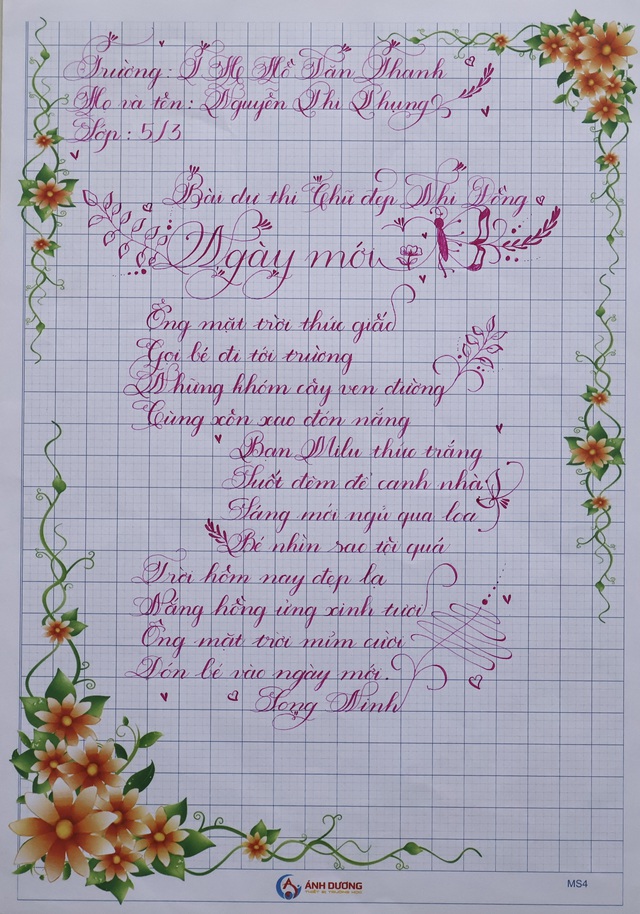 Trường: T H Hồ Văn Thanh
Họ và tên: Nguyễn Thi Phụng
Lớp: 5/3
Bài dự thi Chữ đẹp Nhi Đồng
Ngày mới
Ông mặt trời thức giấc
Gọi bé đi tới trường
Những khóm cây ven đường
Cùng xôn xao đón nắng
Bạn Milu thức trắng
Suốt đêm để canh nhà
Sáng mới ngủ qua loa
Bé nhìn sao tội quá
Trời hôm nay đẹp lạ
Nắng hồng ửng xinh tươi
Ông mặt trời mỉm cười
Đón bé vào ngày mới.
Song Ninh
ÁNH DƯƠNG
THIẾT BỊ TRƯỜNG HỌC
MS4